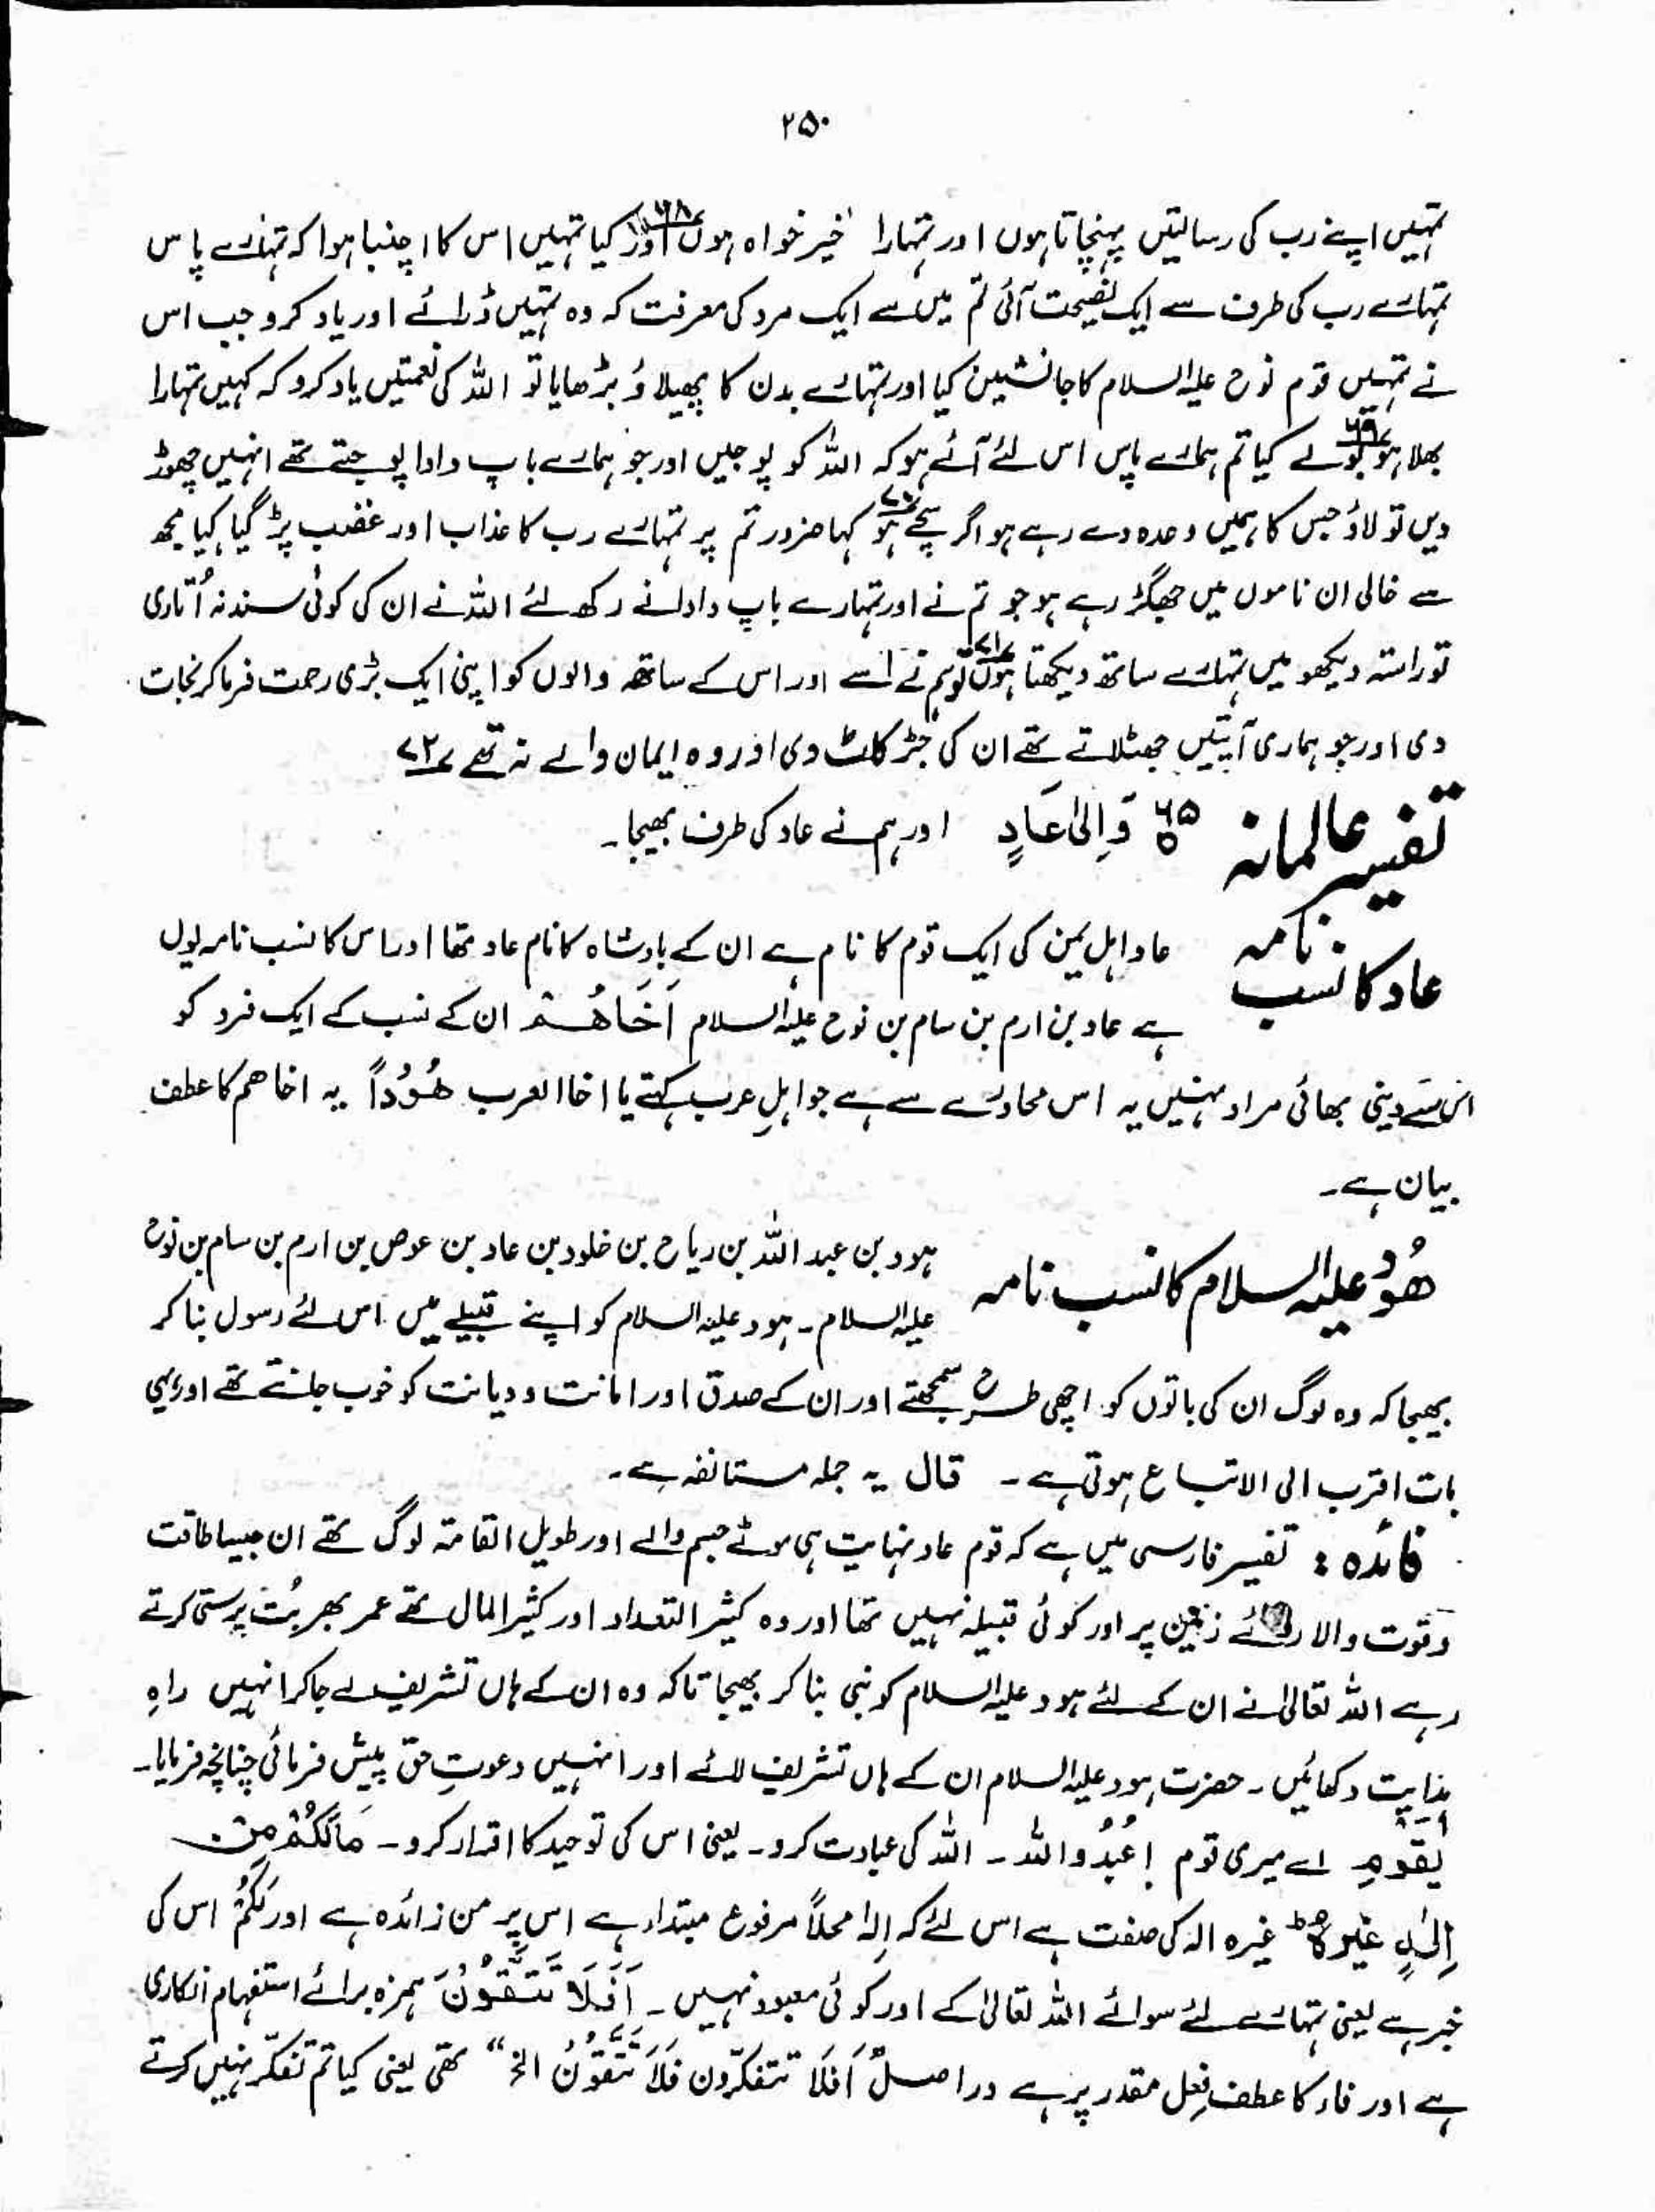 ۲۵۰
تمہیں اپنے رب کی رسالتیں پہنچاتا ہوں اور تمہارا خیر خواہ ہوں ۶۸ اور کیا تمہیں اس کا اچنبا ہوا کہ تمہارے پاس
تمہارے رب کی طرف سے ایک نصیحت آئی تم میں سے ایک مرد کی معرفت کہ وہ تمہیں ڈرائے اور یاد کرو جب اس
نے تمہیں قوم نوح علیہ السلام کا جانشین کیا اور تمہارے بدن کا پھیلاؤ بڑھایا تو اللہ کی نعمتیں یاد کرو کہ کہیں تمہارا
بھلا ہو ۶۹ بولے کیا تم ہمارے پاس اس لئے آئے ہو کہ اللہ کو پوجیں اور جو ہمارے باپ دادا پوجتے تھے انہیں چھوڑ
دیں تو لاؤ جس کا ہمیں وعدہ دے رہے ہو اگر سچے ہو ۷۰ کہا ضرور تم پر تمہارے رب کا عذاب اور غضب پڑ گیا کیا مجھ
سے خالی ان ناموں میں جھگڑ رہے ہو جو تم نے اور تمہارے باپ دادا نے رکھ لئے اللہ نے ان کی کوئی سند نہ اُتاری
تو راستہ دیکھو میں تمہارے ساتھ دیکھتا ہوں ۷۱ تو ہم نے اسے اور اس کے ساتھ والوں کو اپنی ایک بڑی رحمت فرما کر نجات
دی اور جو ہماری آیتیں جھٹلاتے تھے ان کی جڑ کاٹ دی اور وہ ایمان والے نہ تھے ۷۲
تفسیر عالمانہ ۶۵ وَاِلیٰ عَادٍ اور ہم نے عاد کی طرف بھیجا۔
عاد کا نسب نامہ
عاد اہل یمن کی ایک قوم کا نام ہے ان کے بادشاہ کا نام عاد تھا اور اس کا نسب نامہ یوں
ہے عاد بن ارم بن سام بن نوح علیہ السلام اَخَاھُمْ ان کے نسب کے ایک فرد کو
اس سے دینی بھائی مراد نہیں یہ اس محاورے سے ہے جو اہلِ عرب کہتے یا اخا العرب ھُوْداً یہ اخاھم کا عطف
بیان ہے۔
ھُود علیہ السلام کا نسب نامہ
ہود بن عبد اللہ بن ریاح بن خلود بن عاد بن عوص بن ارم بن سام بن نوح
علیہ السلام۔ ہود علیہ السلام کو اپنے قبیلے میں اس لئے رسول بنا کر
بھیجا کہ وہ لوگ ان کی باتوں کو اچھی طرح سمجھتے اور ان کے صدق اور امانت و دیانت کو خوب جانتے تھے اور یہی
بات اقرب الی الاتباع ہوتی ہے۔ قال یہ جملہ مستانفہ ہے۔
فائدہ : تفسیر فارسی میں ہے کہ قوم عاد نہایت ہی موٹے جسم والے اور طویل القامۃ لوگ تھے ان جیسا طاقت
و قوت والا روئے زمین پر اور کوئی قبیلہ نہیں تھا اور وہ کثیر التعداد اور کثیر المال تھے عمر بھر بُت پرستی کرتے
رہے اللہ تعالیٰ نے ان کے لئے ہود علیہ السلام کو نبی بنا کر بھیجا تاکہ وہ ان کے ہاں تشریف لے جا کر انہیں راہِ
ہدایت دکھائیں۔ حضرت ہود علیہ السلام ان کے ہاں تشریف لائے اور انہیں دعوتِ حق پیش فرمائی چنانچہ فرمایا۔
یٰقَوْمِ اے میری قوم اعْبُدُوا اللہ۔ اللہ کی عبادت کرو۔ یعنی اس کی توحید کا اقرار کرو۔ مَالَکُمْ مِنْ
اِلٰہٍ غَیْرُہٗ ط غیرہ الہ کی صفت ہے اس لئے کہ اِلہٰ محلاً مرفوع مبتدا ہے اس پر من زائدہ ہے اور لَکُمْ اس کی
خبر ہے یعنی تمہارے لئے سوائے اللہ تعالیٰ کے اور کوئی معبود نہیں۔ اَفَلَا تَتَّقُوْنَ ہمزہ برائے استفہام انکاری
ہے اور فاء کا عطف فعل مقدر پر ہے دراصل اَفَلَا تتفکّرون فَلَا تَتَّقُوْنَ الخ" تھی یعنی کیا تم تفکّر نہیں کرتے